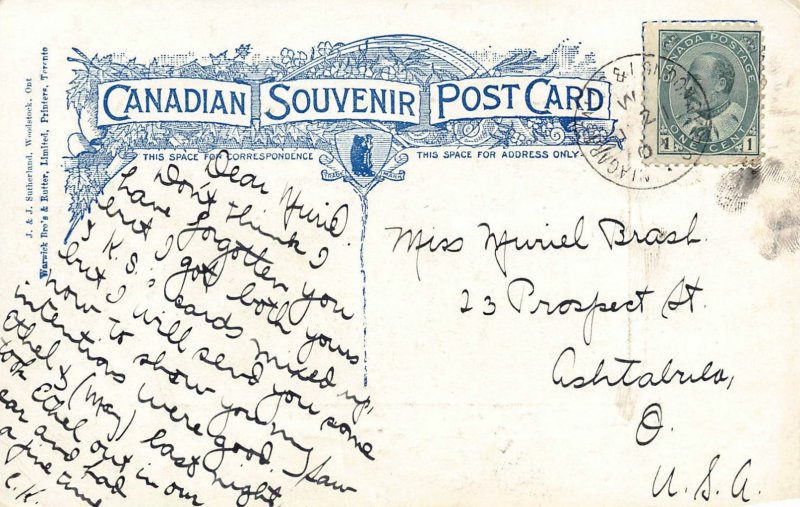 J. & J. Sutherland, Woodstock, Ont
Warwick Bro's & Rutter, Limited, Printers, Toronto
CANADIAN SOUVENIR POST CARD
THIS SPACE FOR CORRESPONDENCE
TRADE MARK
THIS SPACE FOR ADDRESS ONLY
CANADA POSTAGE
1 ONE CENT 1
NIAGARA
Dear Muriel.
Don't think I
have forgotten you
but I got both yours
& K.S.'s cards mixed up,
but I will send you some
now to show you my
intentions were good. I saw
Ethel & (May) last night,
took Ethel out in our
car and had
a fine time
C.K.
Miss Muriel Brash.
23 Prospect St.
Ashtabula,
O.
U.S.A.